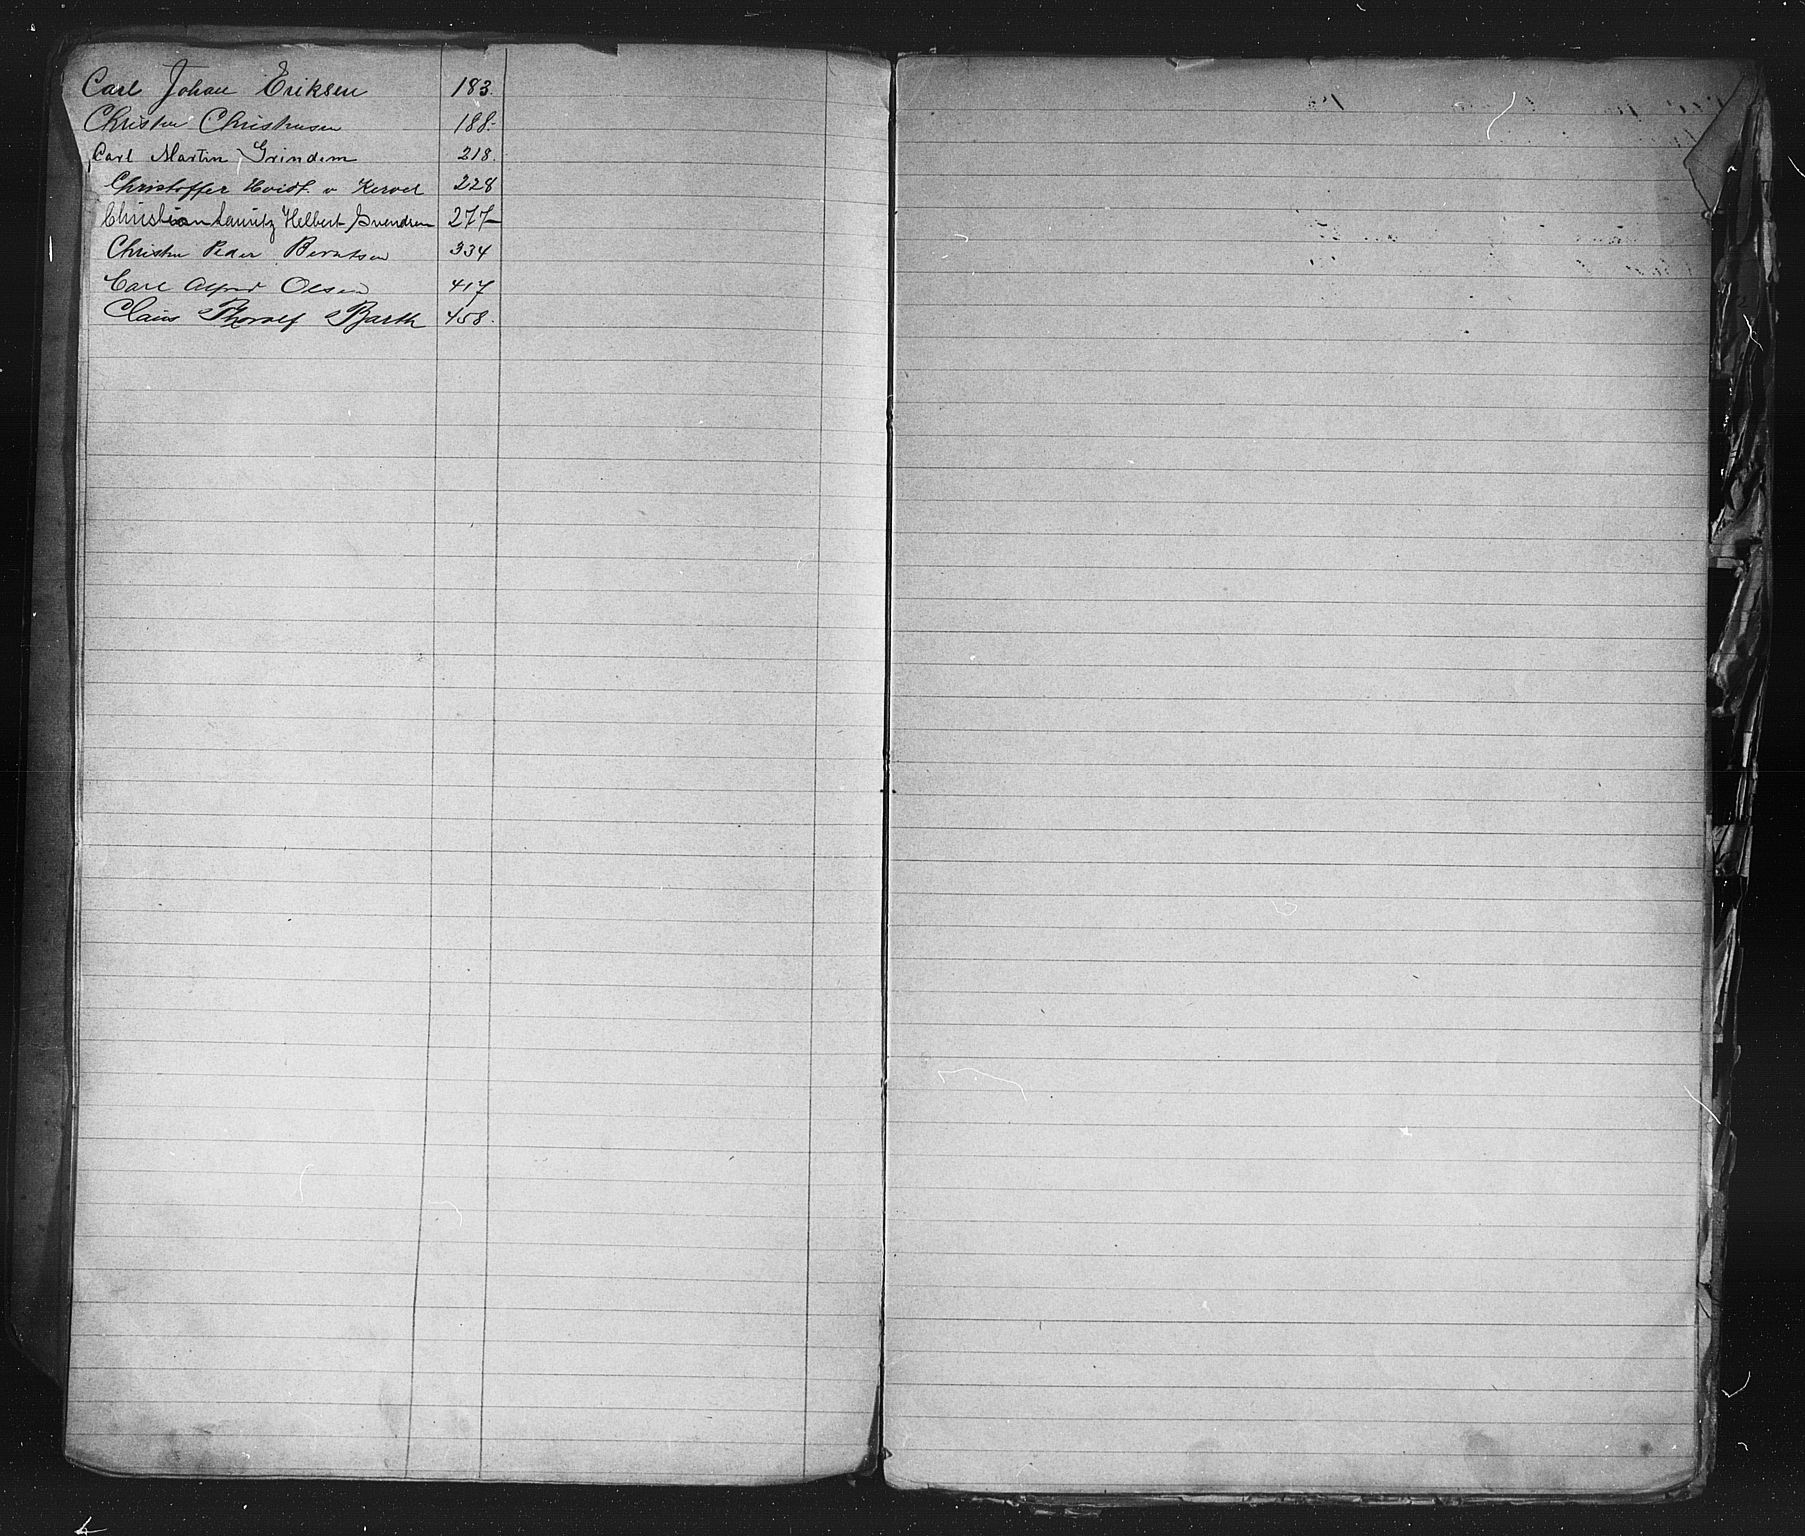 Carl Johan Eriksen 183.
Christen Christensen 188.-
Carl Martin Grindem 218.
Christoffer Hvidt. v 228
Christian Lauritz Helbert Svendsen 277-
Christen Peder Berntsen 334
Carl Alfred Olsen 417
Claus Thoralf Barth 458.